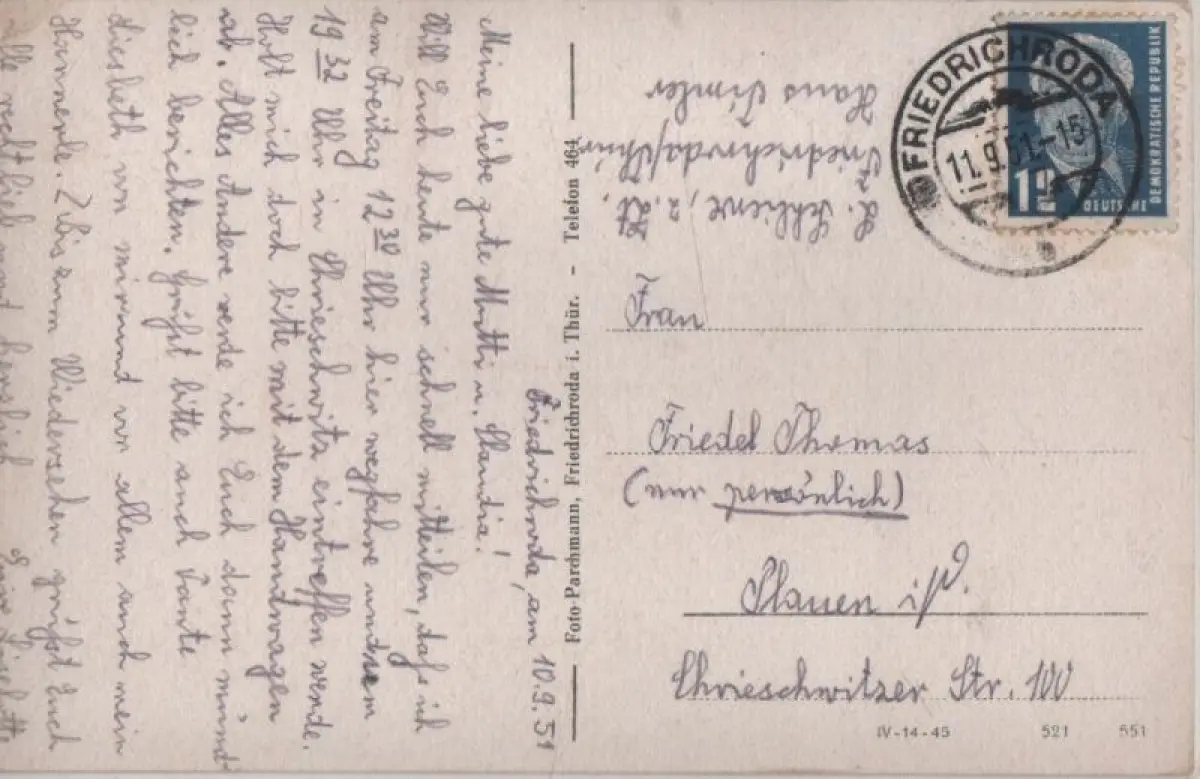 Friedrichroda, am 10.9.51
Meine liebe gute Mutti u. Claudia!
Will Euch heute nur schnell mitteilen, dass ich
am Freitag 12 32 Uhr hier wegfahre und um
19 32 Uhr in Chrieschwitz eintreffen werde.
Holt mich doch bitte mit dem Handwagen
ab. Alles Andere werde ich Euch dann münd-
lich berichten. Grüßt bitte auch Tante
Liesbeth von mir und vor allem auch mein
Hannerle. Bis zum Wiedersehen grüßt Euch
alle recht lieb und herzlich Eure Liselotte
Foto-Parchmann, Friedrichroda i. Thür. - Telefon 464
L. Schliewe, z. Zt.
Friedrichroda/Thür.
Haus
FRIEDRICHRODA
11.9.51.-15
DEUTSCHE
DEMOKRATISCHE REPUBLIK
Frau
Friedel Thomas
(nur persönlich)
Plauen i/V.
Chrieschwitzer Str. 100
IV-14-45 521 551